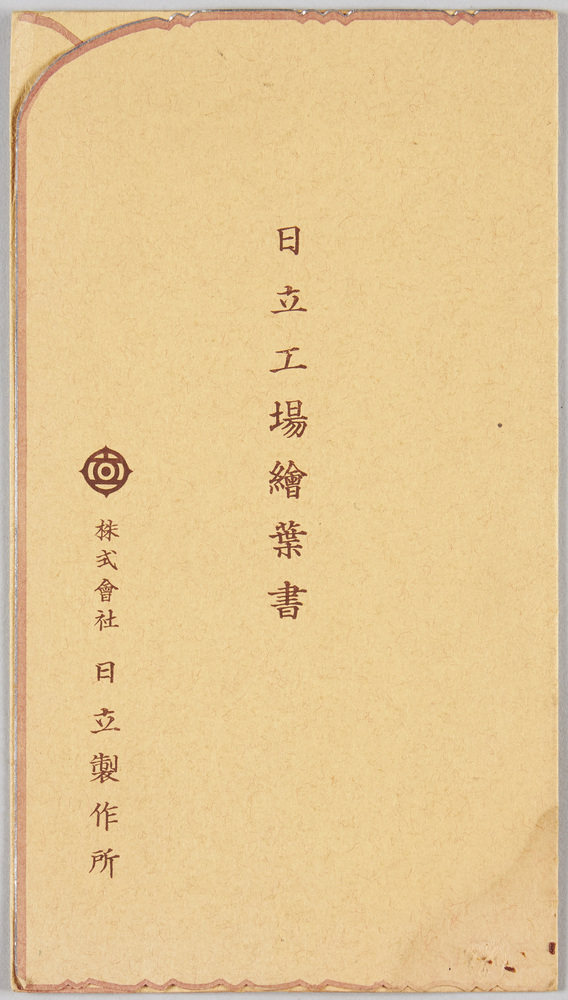 日立工場繪葉書
株式會社 日立製作所